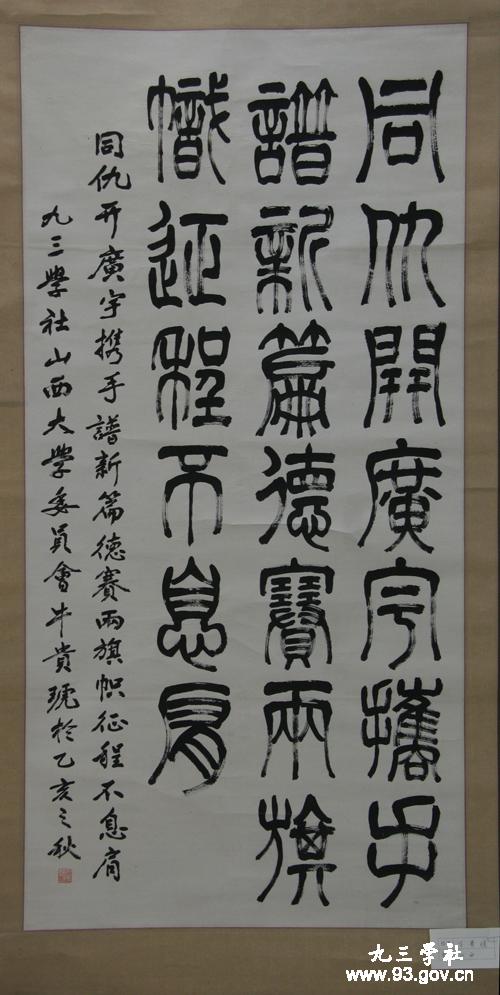 同仇開廣宇攜手
譜新篇德賽兩旗
幟征程不息肩
同仇开廣宇携手譜新篇德赛兩旗帜征程不息肩
九三學社山西大學委員會牛貴琥於乙亥之秋
九三学社
www.93.gov.cn